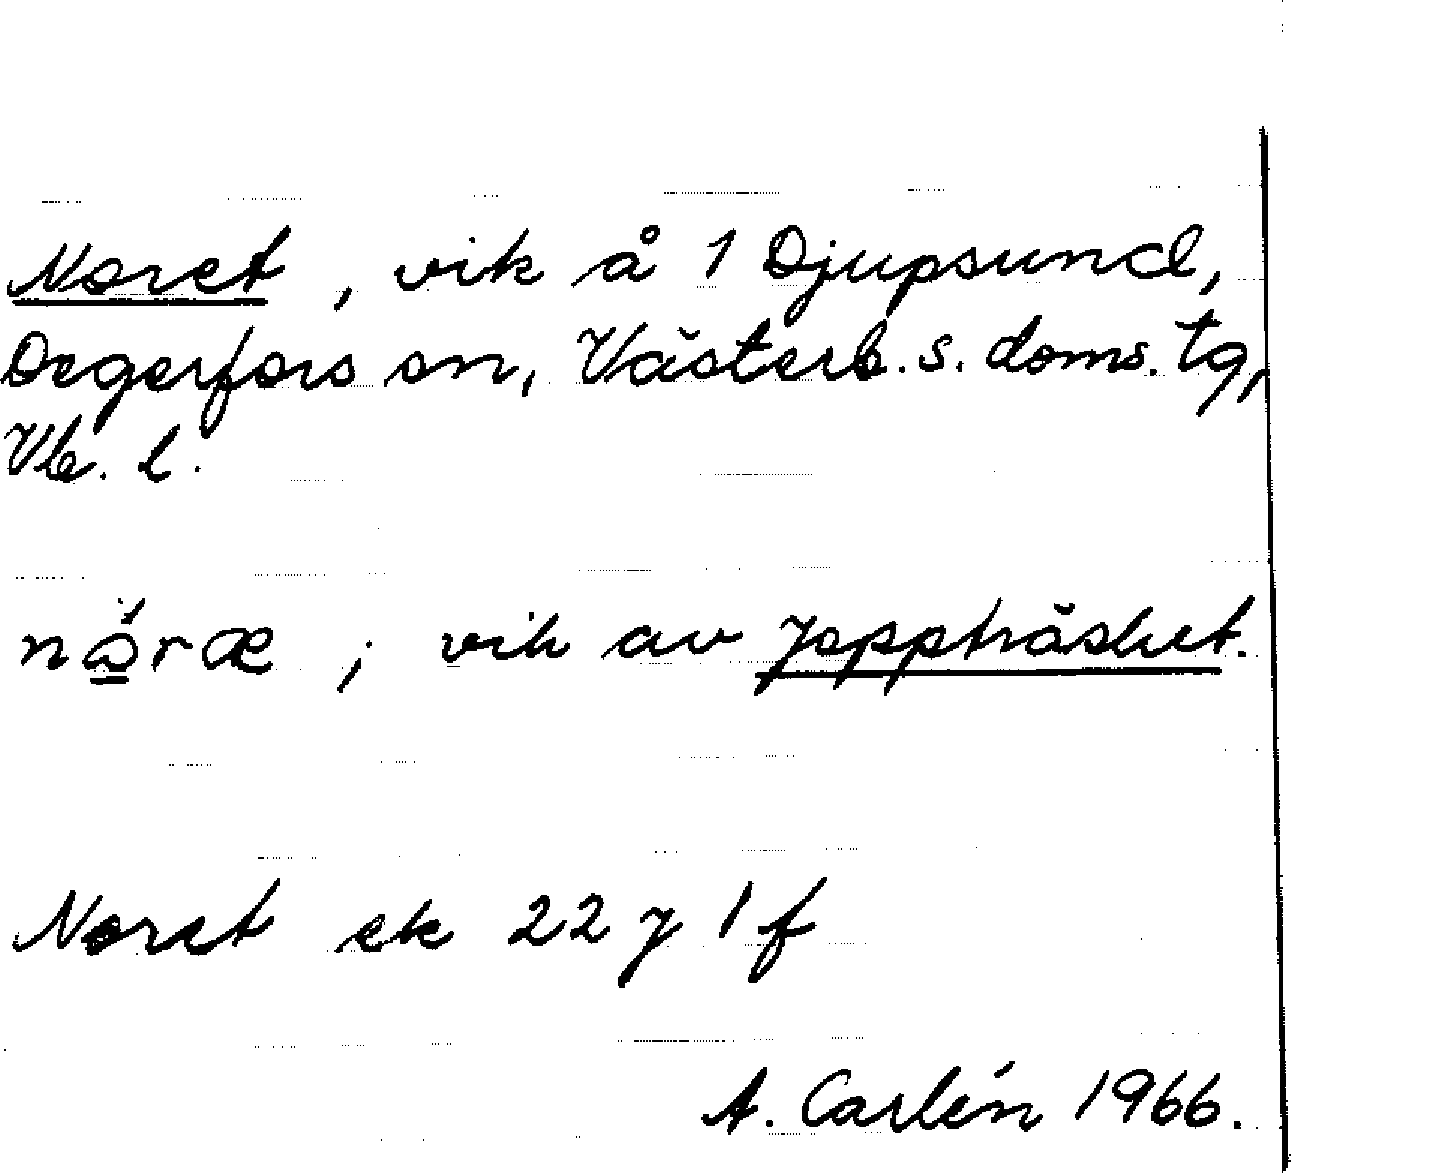 Noret, vik å 1 Djupsund,
Degerfors sn, Västerb. s. doms. tg,
Vb. l.
; vik av Joppträsket.
Noret ek 22 J 1 f
A. Carlén 1966.